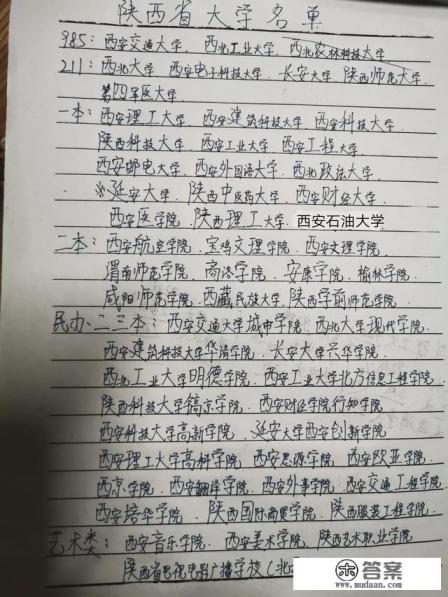 陕西省大学名单
985：西安交通大学、西北工业大学、西北农林科技大学
211：西北大学 西安电子科技大学、长安大学、陕西师范大学、
第四军医大学
一本：西安理工大学、西安建筑科技大学、西安科技大学、
陕西科技大学、西安工业大学 西安工程大学
西安邮电大学、西安外国语大学、西北政法大学
※延安大学、陕西中医药大学、西安财经大学
西安医学院、陕西理工大学、西安石油大学
二本：西安航空学院、宝鸡文理学院、西安文理学院
渭南师范学院、商洛学院、安康学院、榆林学院
咸阳师范学院、西藏民族大学、陕西学前师范学院
民办二三本：西安交通大学城市学院、西北大学现代学院、
西安建筑科技大学华清学院、长安大学兴华学院
西北工业大学明德学院、西安工业大学北方信息工程学院
陕西科技大学镐京学院、西安财经学院行知学院
西安科技大学高新学院、延安大学西安创新学院
西安理工大学高科学院、西安思源学院、西安欧亚学院、
西京学院、西安翻译学院、西安外事学院、西安交通工程学院
西安培华学院、陕西国际商贸学院、陕西服装工程学院、
艺术类：西安音乐学院、西安美术学院、陕西艺术职业学院
陕西省电视电影广播学校（北
答案
www.mudaan.com